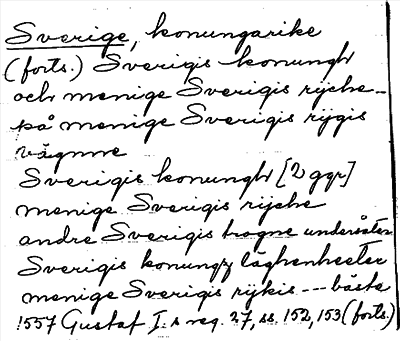 Sverige, konungarike
(forts.) Sverigis konungh
och menige Sverigis rijche -
på menige Sverigis rijgis
vägnne
Sverigis konungh [2 ggr]
menige Sverigis rijche
andre Sverigis trogne undersåter
Sverigis konungz läghenheeter
menige Sverigis rijkis --- bästa
1557 Gustaf I:s reg. 27, ss. 152, 153 (forts.)